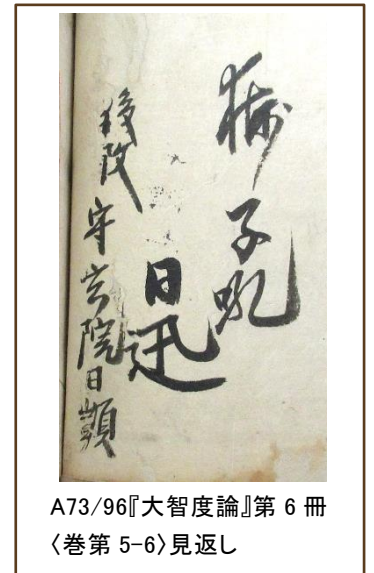 獅子吼
日迅
後改 守玄院日顗
A73/96『大智度論』第 6 冊
〈巻第 5-6〉見返し